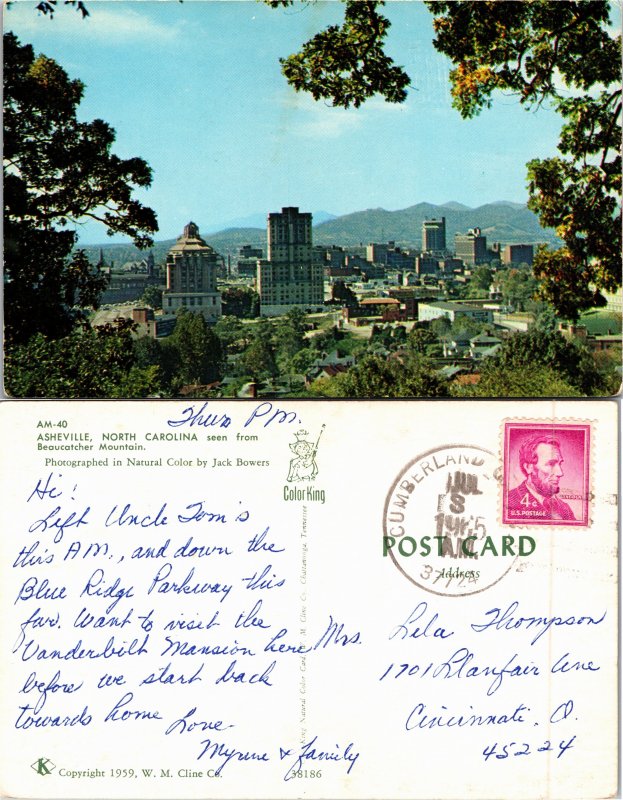 AM-40
ASHEVILLE, NORTH CAROLINA seen from
Beaucatcher Mountain.
Photographed in Natural Color by Jack Bowers
Thurs P.M.
Hi!
Left Uncle Tom's
this A.M., and down the
Blue Ridge Parkway this
far. Want to visit the
Vanderbilt Mansion here
before we start back
towards home
Love
& family
Copyright 1959, W. M. Cline Co.
K
Color King
W. M. Cline Co., Chattanooga, Tennessee
38186
CUMBERLAND
JUL
8
AM
4¢
LINCOLN
U.S. POSTAGE
POST CARD
Address
Mrs. Lela Thompson
1701 Llanfair Ave
Cincinnati, O.
45224